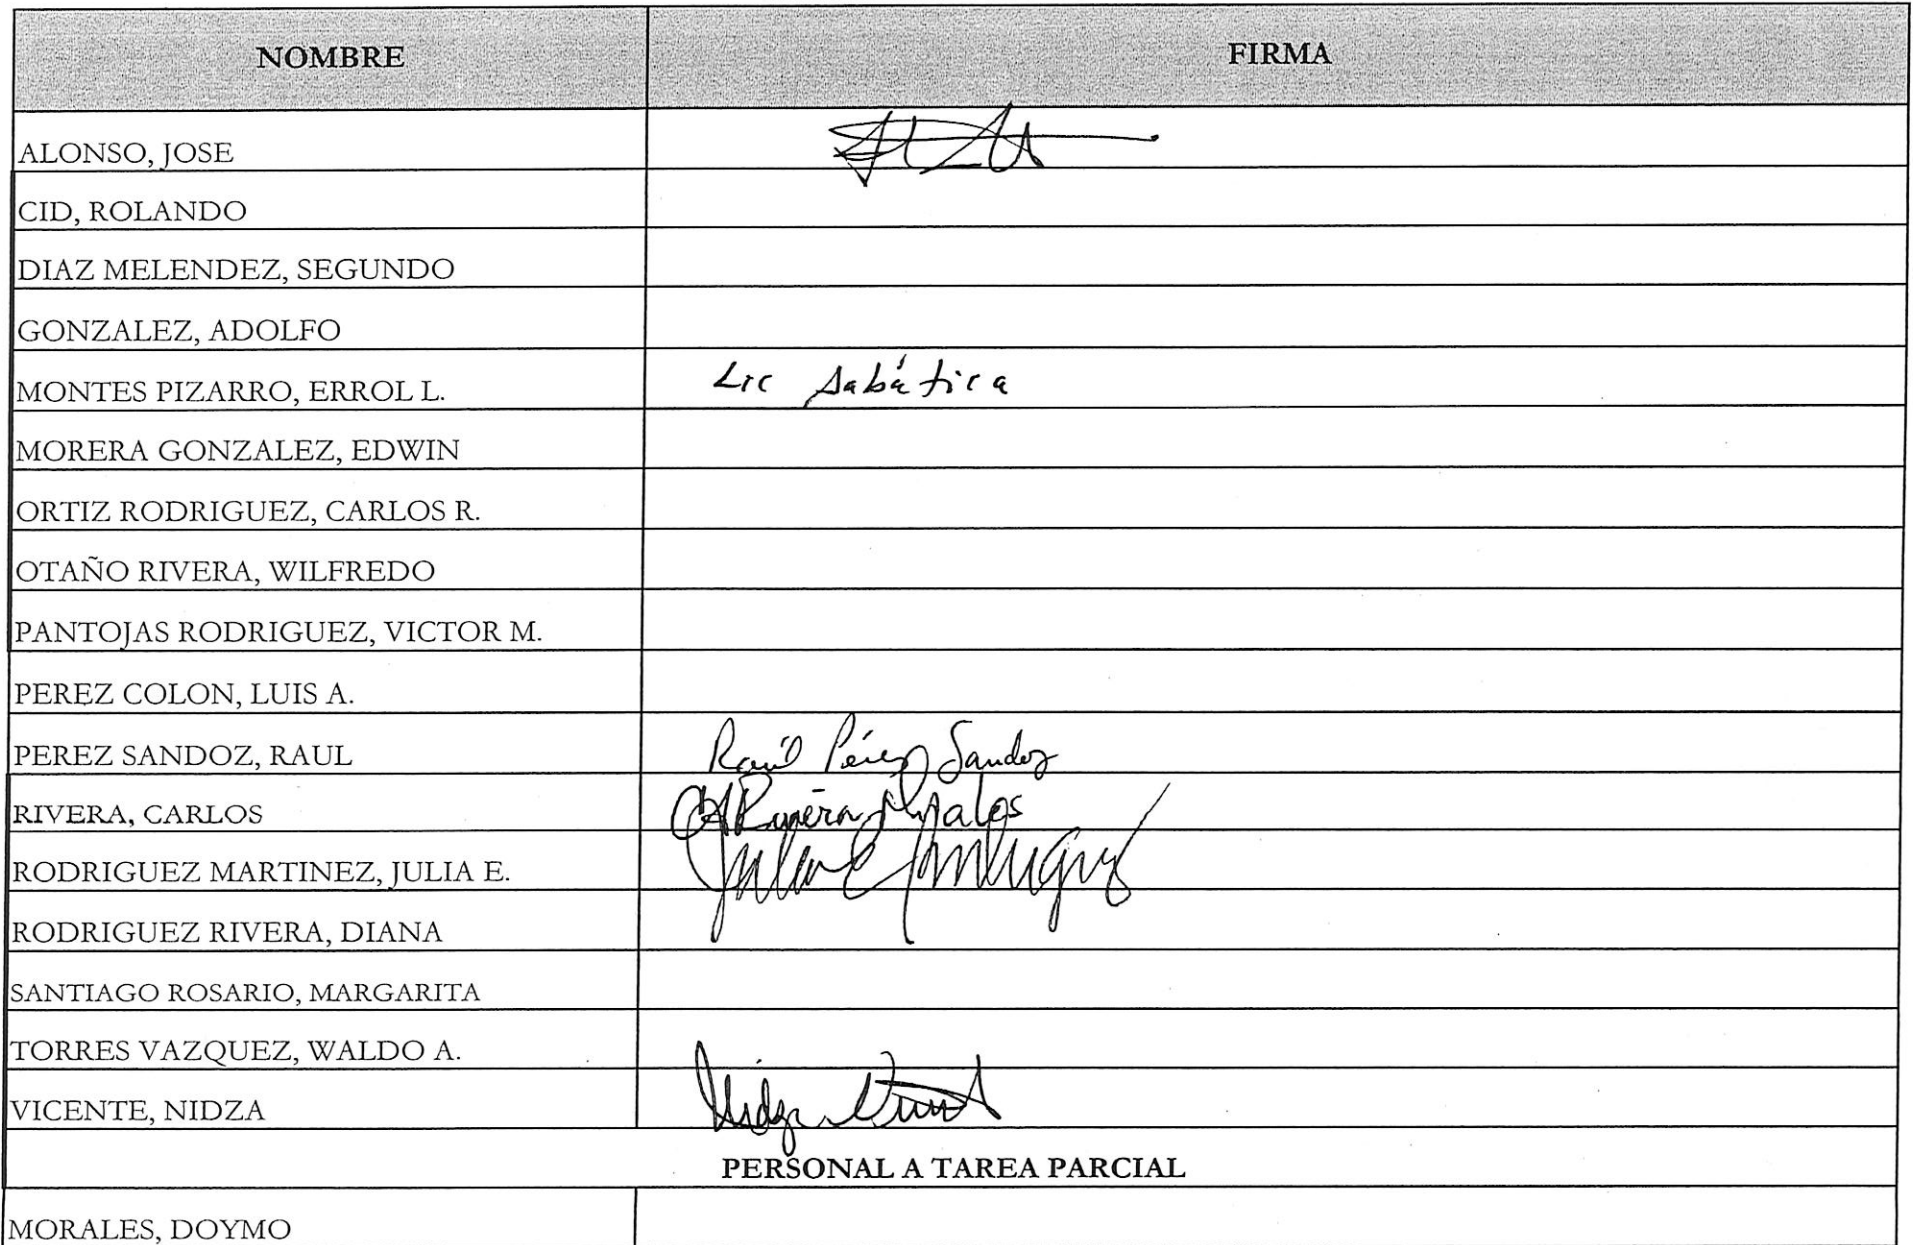 NOMBRE FIRMA
ALONSO, JOSE
CID, ROLANDO
DIAZ MELENDEZ, SEGUNDO
GONZALEZ, ADOLFO
MONTES PIZARRO, ERROL L. Lic Sabática
MORERA GONZALEZ, EDWIN
ORTIZ RODRIGUEZ, CARLOS R.
OTAÑO RIVERA, WILFREDO
PANTOJAS RODRIGUEZ, VICTOR M.
PEREZ COLON, LUIS A.
PEREZ SANDOZ, RAUL Raúl Pérez Sandoz
RIVERA, CARLOS Rivera
RODRIGUEZ MARTINEZ, JULIA E. Julia E
RODRIGUEZ RIVERA, DIANA
SANTIAGO ROSARIO, MARGARITA
TORRES VAZQUEZ, WALDO A.
VICENTE, NIDZA Nidza
PERSONAL A TAREA PARCIAL
MORALES, DOYMO